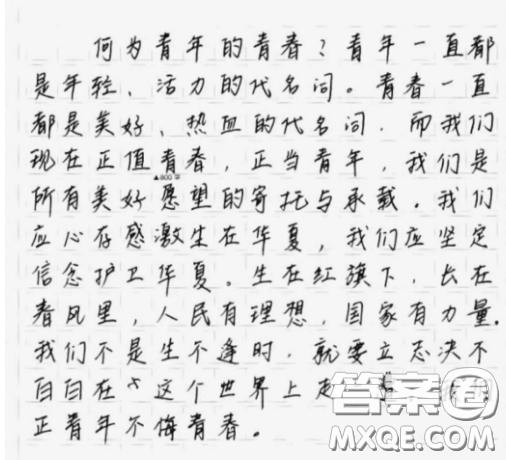 何为青年的青春？青年一直都
是年轻、活力的代名词。青春一直
都是美好、热血的代名词，而我们
现在正值青春，正当青年，我们是
▲800字
所有美好愿望的寄托与承载。我们
应心存感激生在华夏，我们应坚定
信念护卫华夏。生在红旗下，长在
春风里，人民有理想，国家有力量，
我们不是生不逢时，就要立志决不
白白在这个世界上走
答案圈
正青年不悔青春。